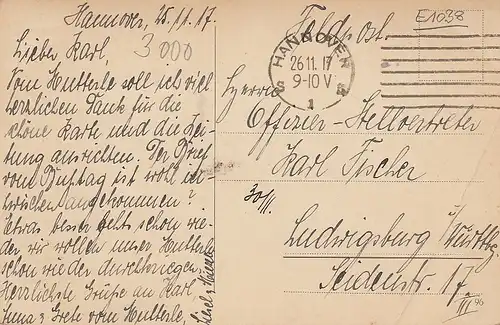 Hannover, 25.11.17.
Lieber Karl,
3000
Vom Mutterle soll ich viel
herzlichen Dank für die
schöne Karte und die Zei-
tung ausrichten. Der Brief
vom Bußtag ist wohl in-
zwischen angekommen?
Etwas besser gehts schon wie-
der wir wollen unser Mutterle
schon wieder durchbringen.
Herzlichste Grüße an Karl,
Grete vom Mutterle,
Feldpost.
E1038
HANNOVER
26.11.17
9-10 V
S 3
1
Herrn
Offizier-Stellvertreter
Karl Fischer
Ludwigsburg Württbg.
Seidenstr. 17
III
96